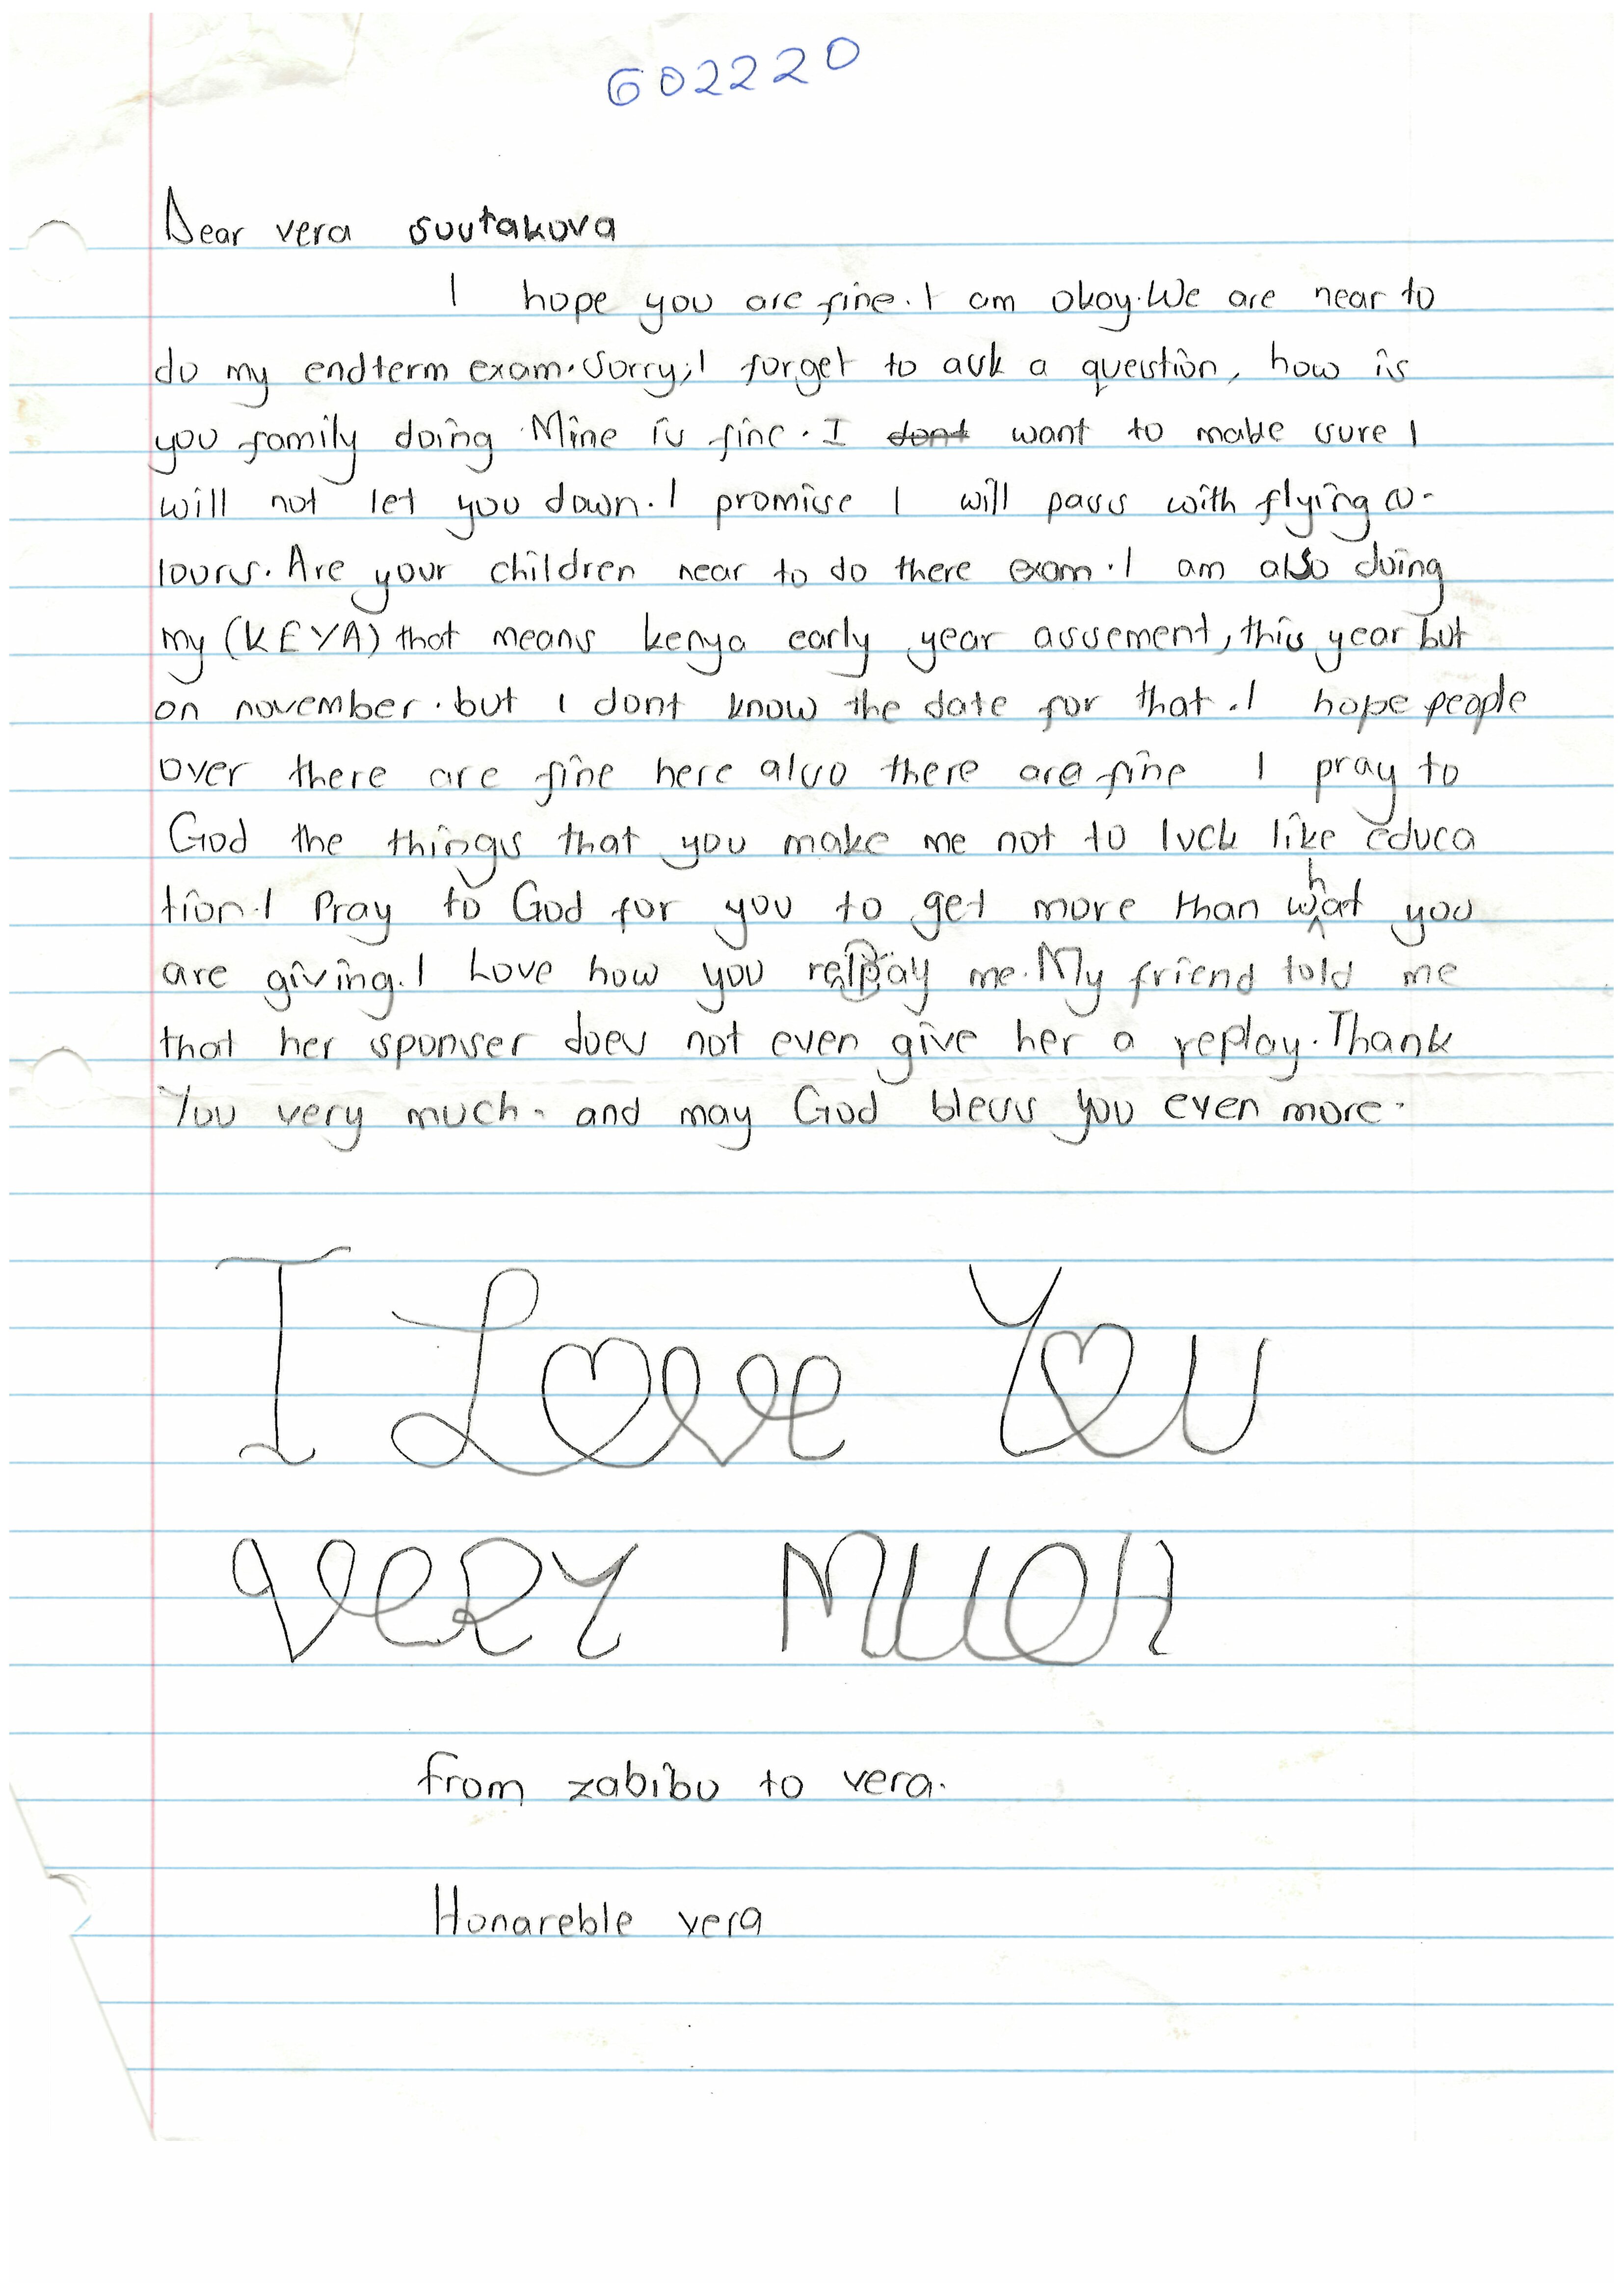 602220
Dear vera suutakova
I hope you are fine. I am okay. We are near to
do my endterm exam. Sorry, I forget to ask a question, how is
you family doing Mine is fine. I dont want to make sure I
will not let you down. I promise I will pass with flying co-
lours. Are your children near to do there exam. I am also doing
my (KEYA) that means kenya early year assement, this year but
on november. but I dont know the date for that. I hope people
over there are fine here also there are fine I pray to
God the things that you make me not to luck like educa
tion. I Pray to God for you to get more than what you
are giving. I Love how you replay me. My friend told me
that her sponser does not even give her a replay. Thank
You very much. and may God bless you even more.
I Love You
VeRY MUCH
from zabibu to vera.
Honareble vera